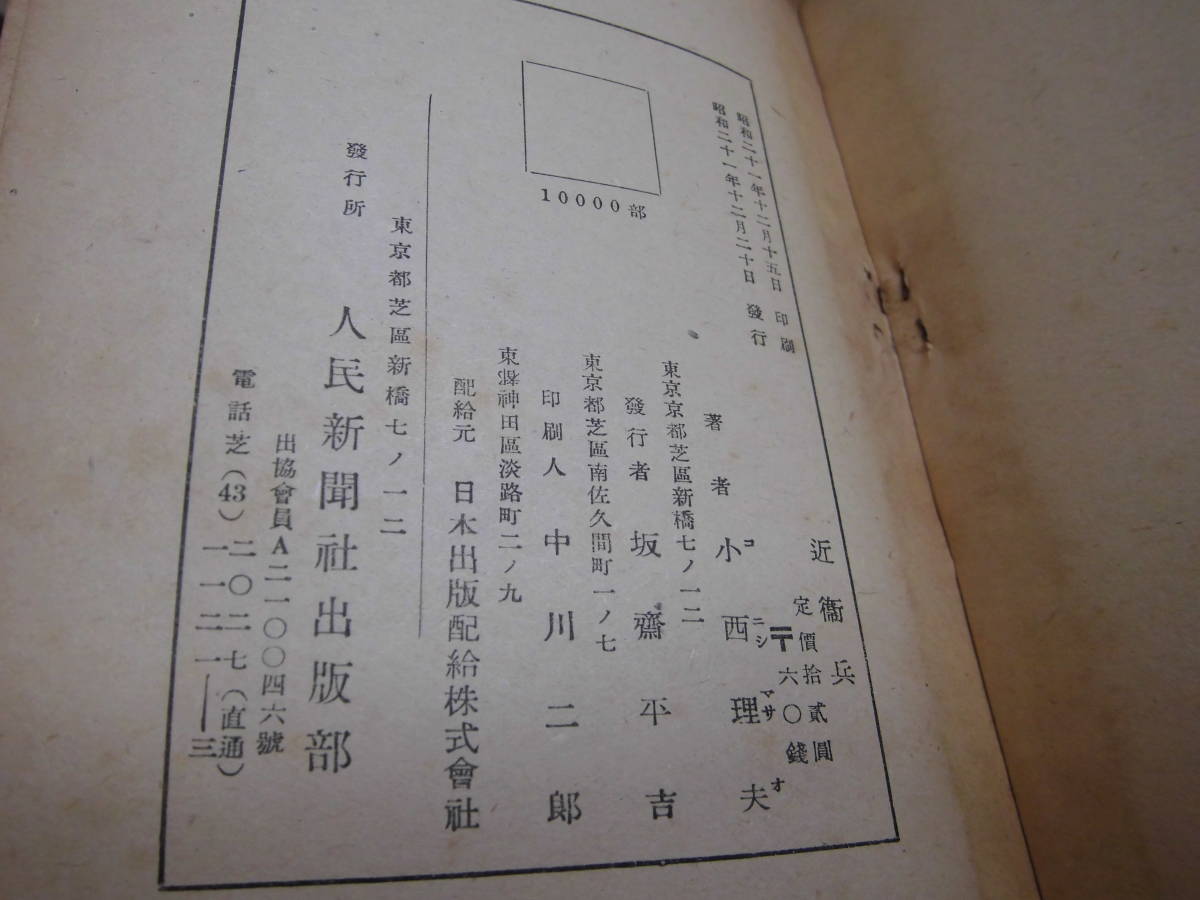 近衞兵
定價拾貳圓
〒六〇錢
昭和二十一年十二月十五日 印刷
昭和二十一年十二月二十日 發行
著者 小西理夫
コニシマサオ
東京京都芝區新橋七ノ一二
發行者 坂齋平吉
東京都芝區南佐久間町一ノ七
印刷人 中川二郎
東京都神田區淡路町二ノ九
10000部
配給元 日本出版配給株式會社
東京都芝區新橋七ノ一二
發行所 人民新聞社出版部
出協會員A二一〇〇四六號
電話芝(43)二〇二七(直通)
一一二一——三